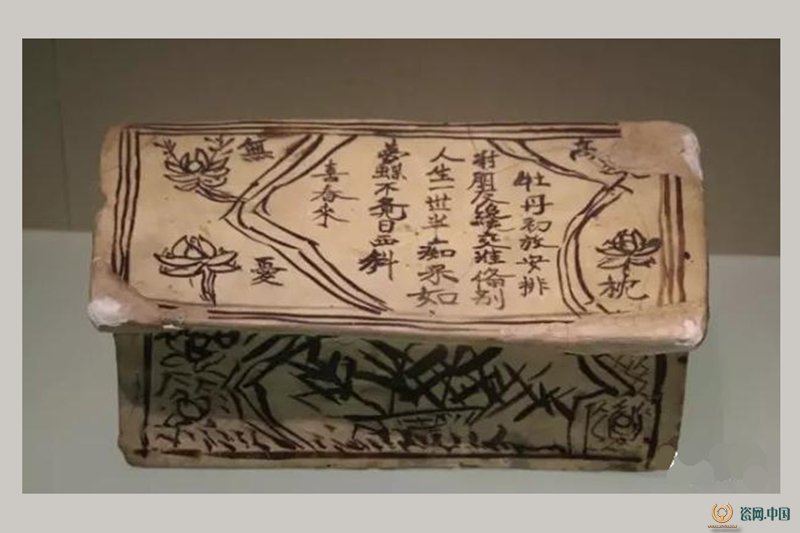 高枕
牡丹初放安排
謝朋友纔交准偹别
人生一世半痴呆如
夢蝶不覺日西斜
喜春來
無憂
瓷网.中国